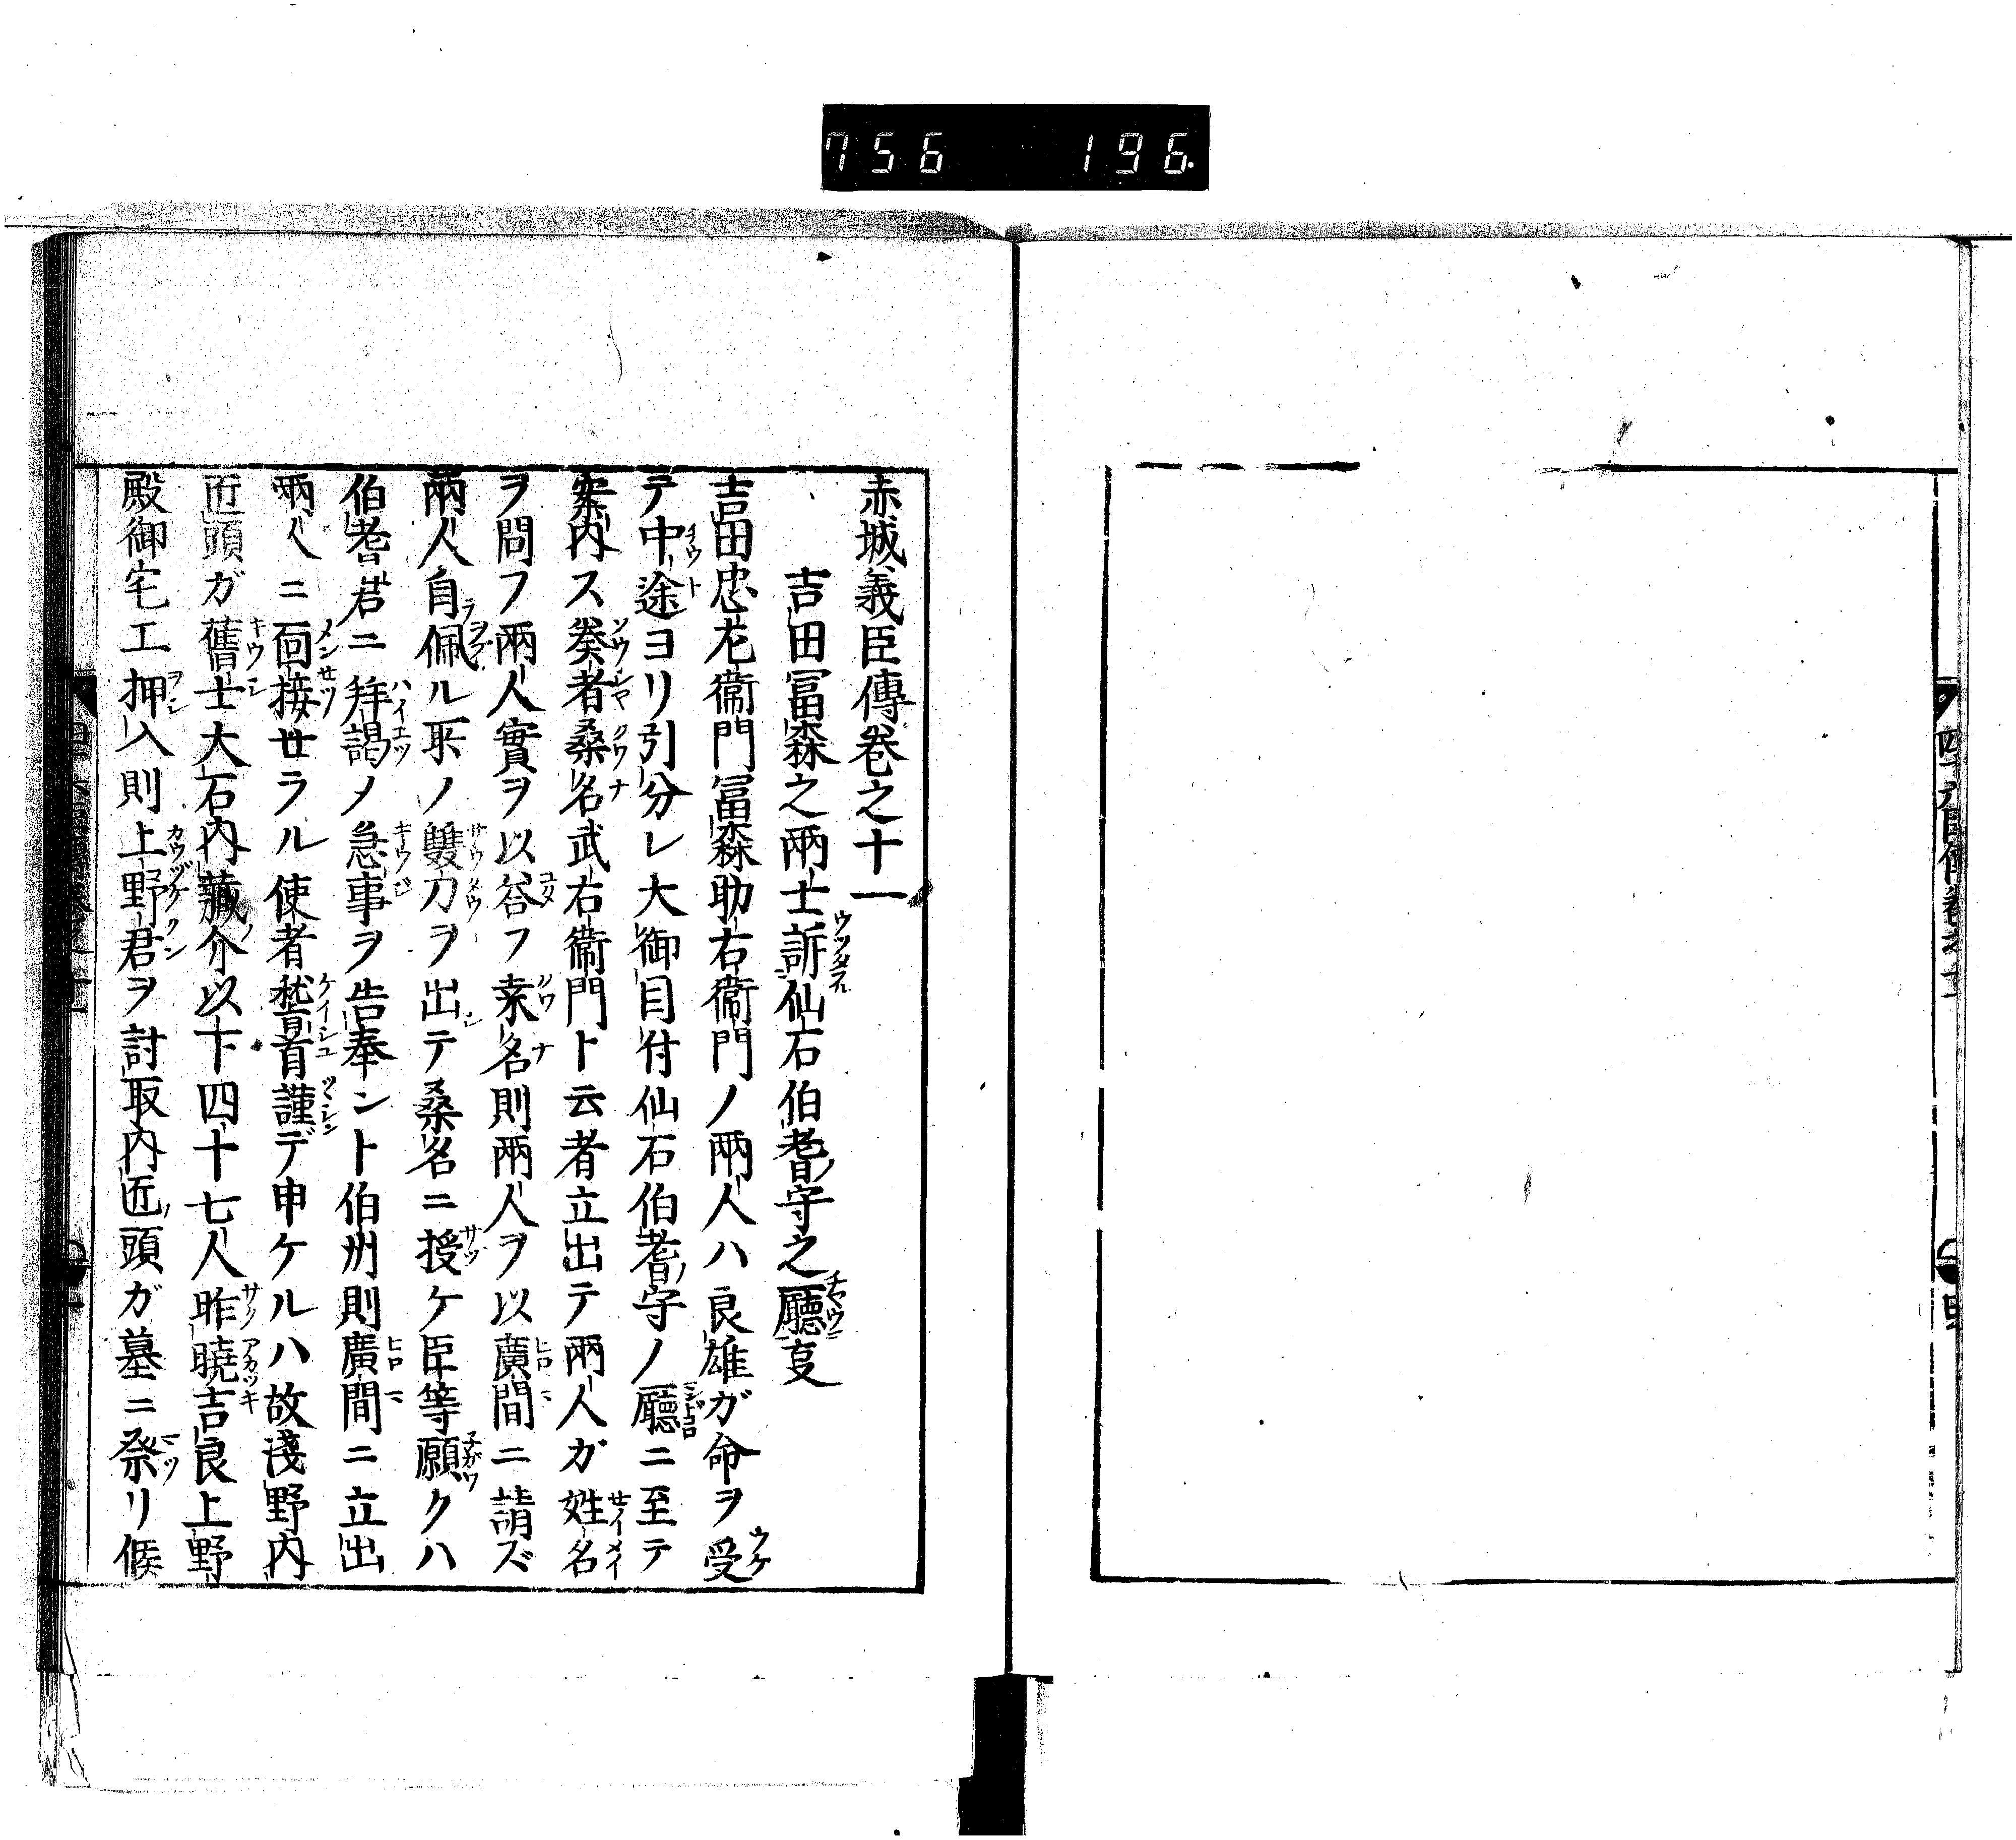 756 196
赤城義臣傳卷之十一
吉田冨森之兩士訴仙石伯耆守之廳支
吉田忠左衞門冨森助右衞門ノ兩人ハ良雄ガ命ヲ受
テ中途ヨリ引分レ大御目付仙石伯耆守ノ廳ニ至テ
案内ス奏者桑名武右衞門ト云者立出テ兩人ガ姓名
ヲ問フ兩人實ヲ以答フ桒名則兩人ヲ以廣間ニ請ズ
兩人自佩ル所ノ雙刀ヲ出テ桑名ニ授ケ臣等願クハ
伯耆君ニ拜謁メ急事ヲ告奉ント伯州則廣間ニ立出
兩人ニ面接せラル使者嵆首謹デ申ケルハ故淺野内
匠頭ガ舊士大石内藏介以下四十七人昨曉吉良上野
殿御宅エ押入則上野君ヲ討取内匠頭ガ墓ニ祭リ候